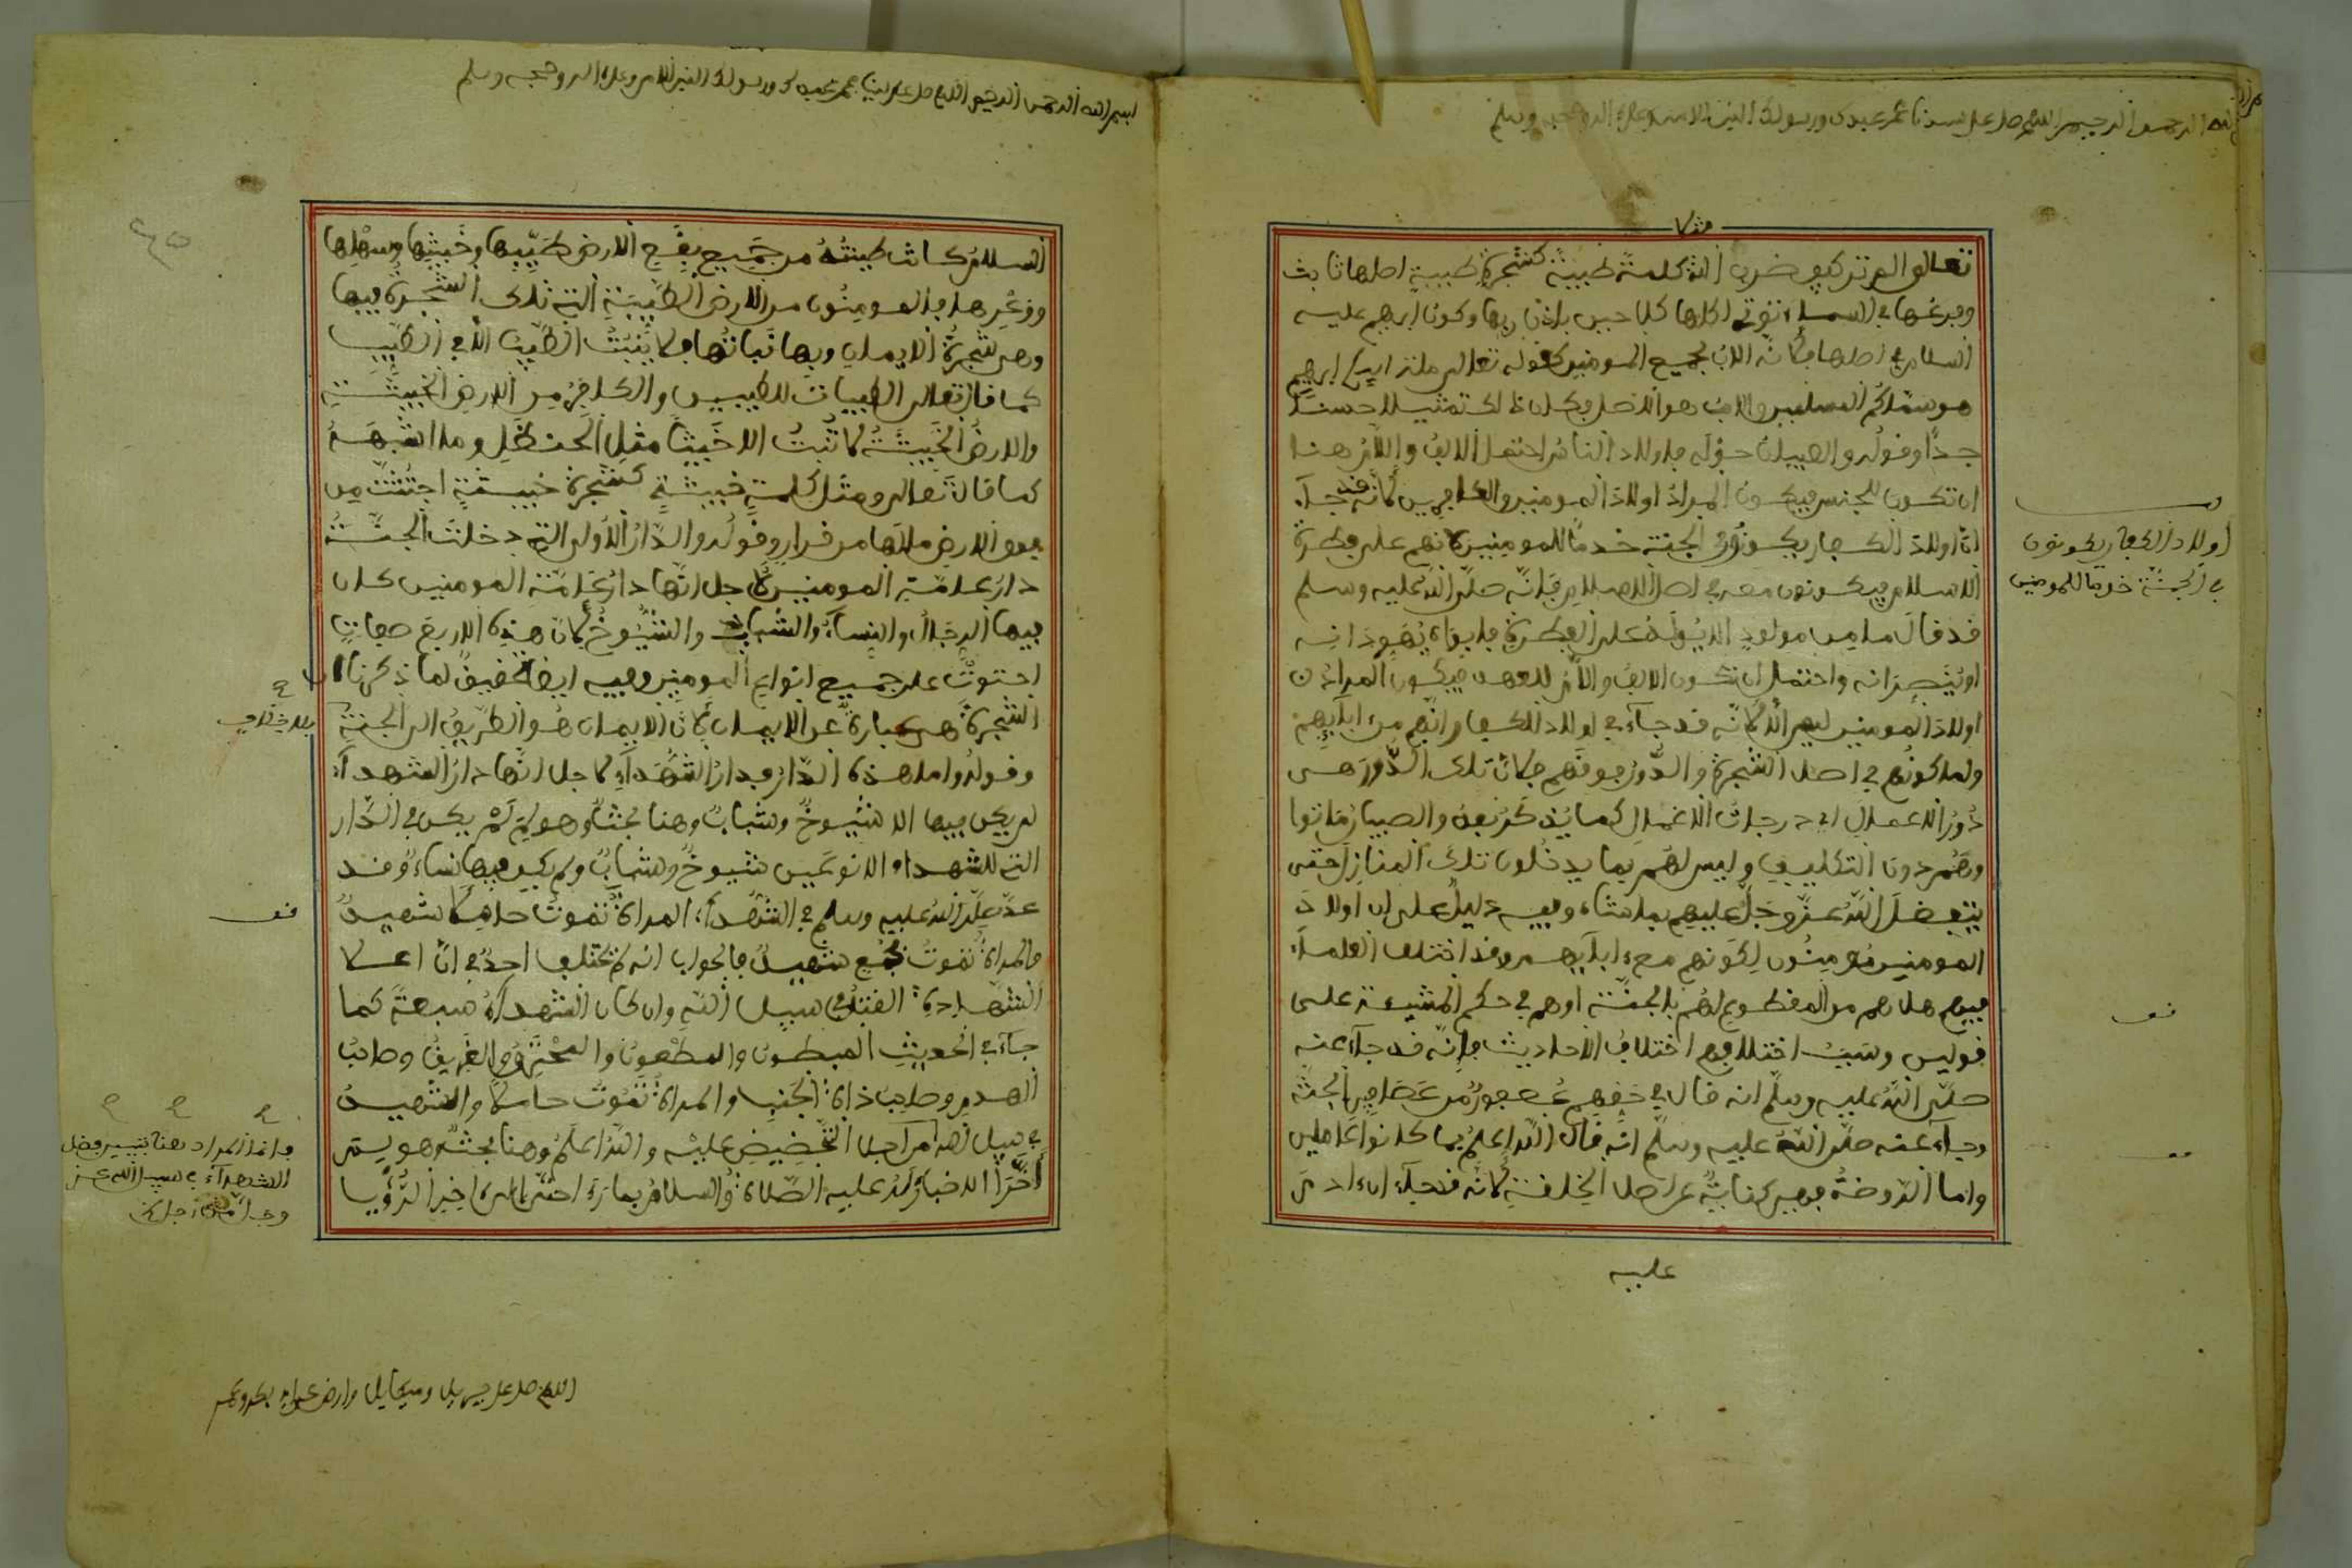 الله الرحمن الرحيم اللهم صل على سيدنا محمد عبدك ورسولك النبي الامي وعلى اله وصحبه وسلم
مثلا
تعالى الم تر كيف ضرب الله كلمة طيبة كشجرة طيبة اصلها ثابت
وفرعها في السماء توتي اكلها كل حين باذن ربها وكون ابرهيم عليه
السلام في اصلها فلانه الاب لجميع المومنين كقوله تعالى ملة ابيكم ابرهيم
هو سماكم المسلمين والاب هو الاصل فكان ذلك تمثيلا حسنا
جدا وقوله والصبيان حوله فاولاد الناس احتمل الالف واللام هنا
ان تكون للجنس فيكون المراد اولاد المومنين والكافرين لانه قد جآء
ان اولاد الكفار يكونون في الجنة خدما للمومنين لانهم على فطرة
الاسلام فيكونون معه في اصل الاسلام فانه صلى الله عليه وسلم
قد قال ما من مولود الا يولد على الفطرة فابواه يهودانه
او ينصرانه واحتمل ان تكون الالف واللام للعهد فيكون المراد
اولاد المومنين ليس الا لانه قد جآء في اولاد الكفار انهم من ابآئهم
ولما كونهم في اصل الشجرة والدور فوقهم فلان تلك الدور هي
دور الاعمال اي درجات الاعمال كما يذكر بعد والصبيان ماتوا
وهم دون التكليف وليس لهم بما يدخلون تلك المنازل حتى
يتفضل الله عز وجل عليهم بما شاء وفيه دليل على ان اولاد
المومنين مومنون لكونهم مع ابآئهم وقد اختلف العلمآء
فيهم هل هم من المقطوع لهم بالجنة او هم في حكم المشيئة على
قولين وسبب اختلافهم اختلاف الاحاديث فانه قد جآء عنه
صلى الله عليه وسلم انه قال في حقهم عصفور من عصافير الجنة
وجآء عنه صلى الله عليه وسلم انه قال الله اعلم بما كانوا عاملين
واما الروضة فهي كناية عن اصل الخلقة لانه قد جآء ان ادم
عليه
اولاد الكفار يكونون
في الجنة خدما للمومنين
قف
بسم الله الرحمن الرحيم اللهم صل على سيدنا محمد عبدك ورسولك النبي الامي وعلى اله وصحبه وسلم
السلام كانت طينته من جميع بقع الارض طيبها وخبيثها وسهلها
ووعرها فالمومنون من الارض الطيبة التي تلك الشجرة فيها
وهي شجرة الايمان وبها نباتها ولا ينبت الطيب الا في الطيب
كما قال تعالى الطيبات للطيبين والكافر من الارض الخبيثة
والارض الخبيثة لا تنبت الا خبيثا مثل الحنظل وما اشبهه
كما قال تعالى ومثل كلمة خبيثة كشجرة خبيثة اجتثت من
فوق الارض ما لها من قرار وقوله والدار الاولى التي دخلت الجنة
دار عامة المومنين لاجل انها دار عامة المومنين كان
فيها الرجال والنسآء والشباب والشيوخ لان هذه الاربع صفات
احتوت على جميع انواع المومنين وفيه ايضا تحقيق لما ذكرنا ان
الشجرة هي عبارة عن الايمان لان الايمان هو الطريق الى الجنة
بلا خلاف
وقوله واما هذه الدار فدار الشهدآء لاجل انها دار الشهدآء
لم يكن فيها الا شيوخ وشباب وهنا بحث وهو لم لم يكن في الدار
التي للشهداء الا نوعين شيوخ وشباب ولم يكن فيها نساء وقد
عد صلى الله عليه وسلم في الشهدآء المراة تموت حاملا شهيد
والمراة تموت بجمع شهيد فالجواب انه لم يختلف احد في ان اعلا
الشهادة القتل في سبيل الله وان كان الشهدآء سبعة كما
جآء في الحديث المبطون والمطعون والمحترق والغريق وصاحب
الهدم وصاحب ذات الجنب والمراة تموت حاملا والشهيد
في سبيل الله من اجل التحضيض عليه والله اعلم وهنا بحث هو لم
اخرا اخباره عليه الصلاة والسلام بما راى حتى الى اخر الرؤيا
قف
وانما المراد هنا تبيين فضل
الشهدآء في سبيل الله عز
وجل من اجل
اللهم صل على جبريل وميكايل وارض عن ابي بكر وعمر